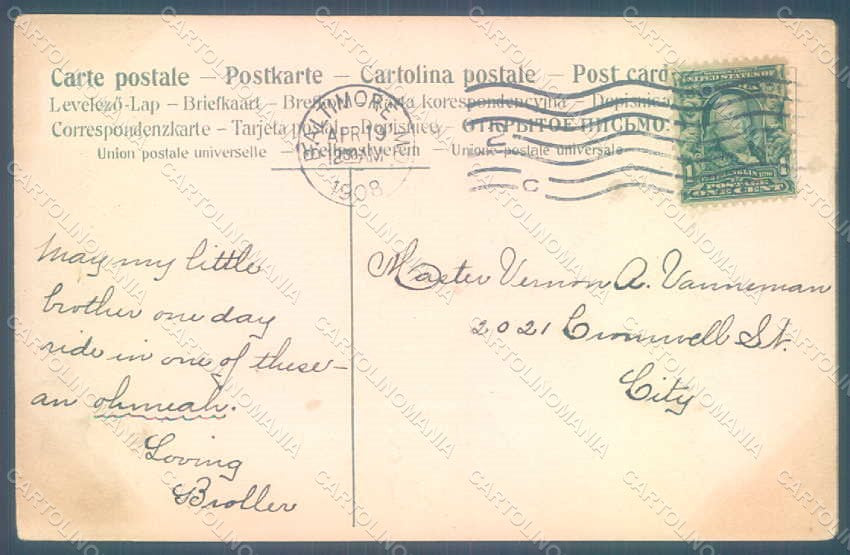 Carte postale – Postkarte – Cartolina postale – Post card
Levelező-Lap – Briefkaart – Brefkort – Karta korespondencyjna – Dopisnica
Correspondenzkarte – Tarjeta postal – Dopisnice – ОТКРЫТОЕ ПИСЬМО.
Union postale universelle – Weltpostverein – Unione postale universale
BALTIMORE, MD.
APR 19
1908
UNITED STATES OF
FRANKLIN
1 POSTAGE 1
ONE CENT
May my little
brother one day
ride in one of these –
an ohmeah.
Loving
Broller
Master Vernon A. Vanneman
2021 Cromwell St.
City
CARTOLINOMANIA